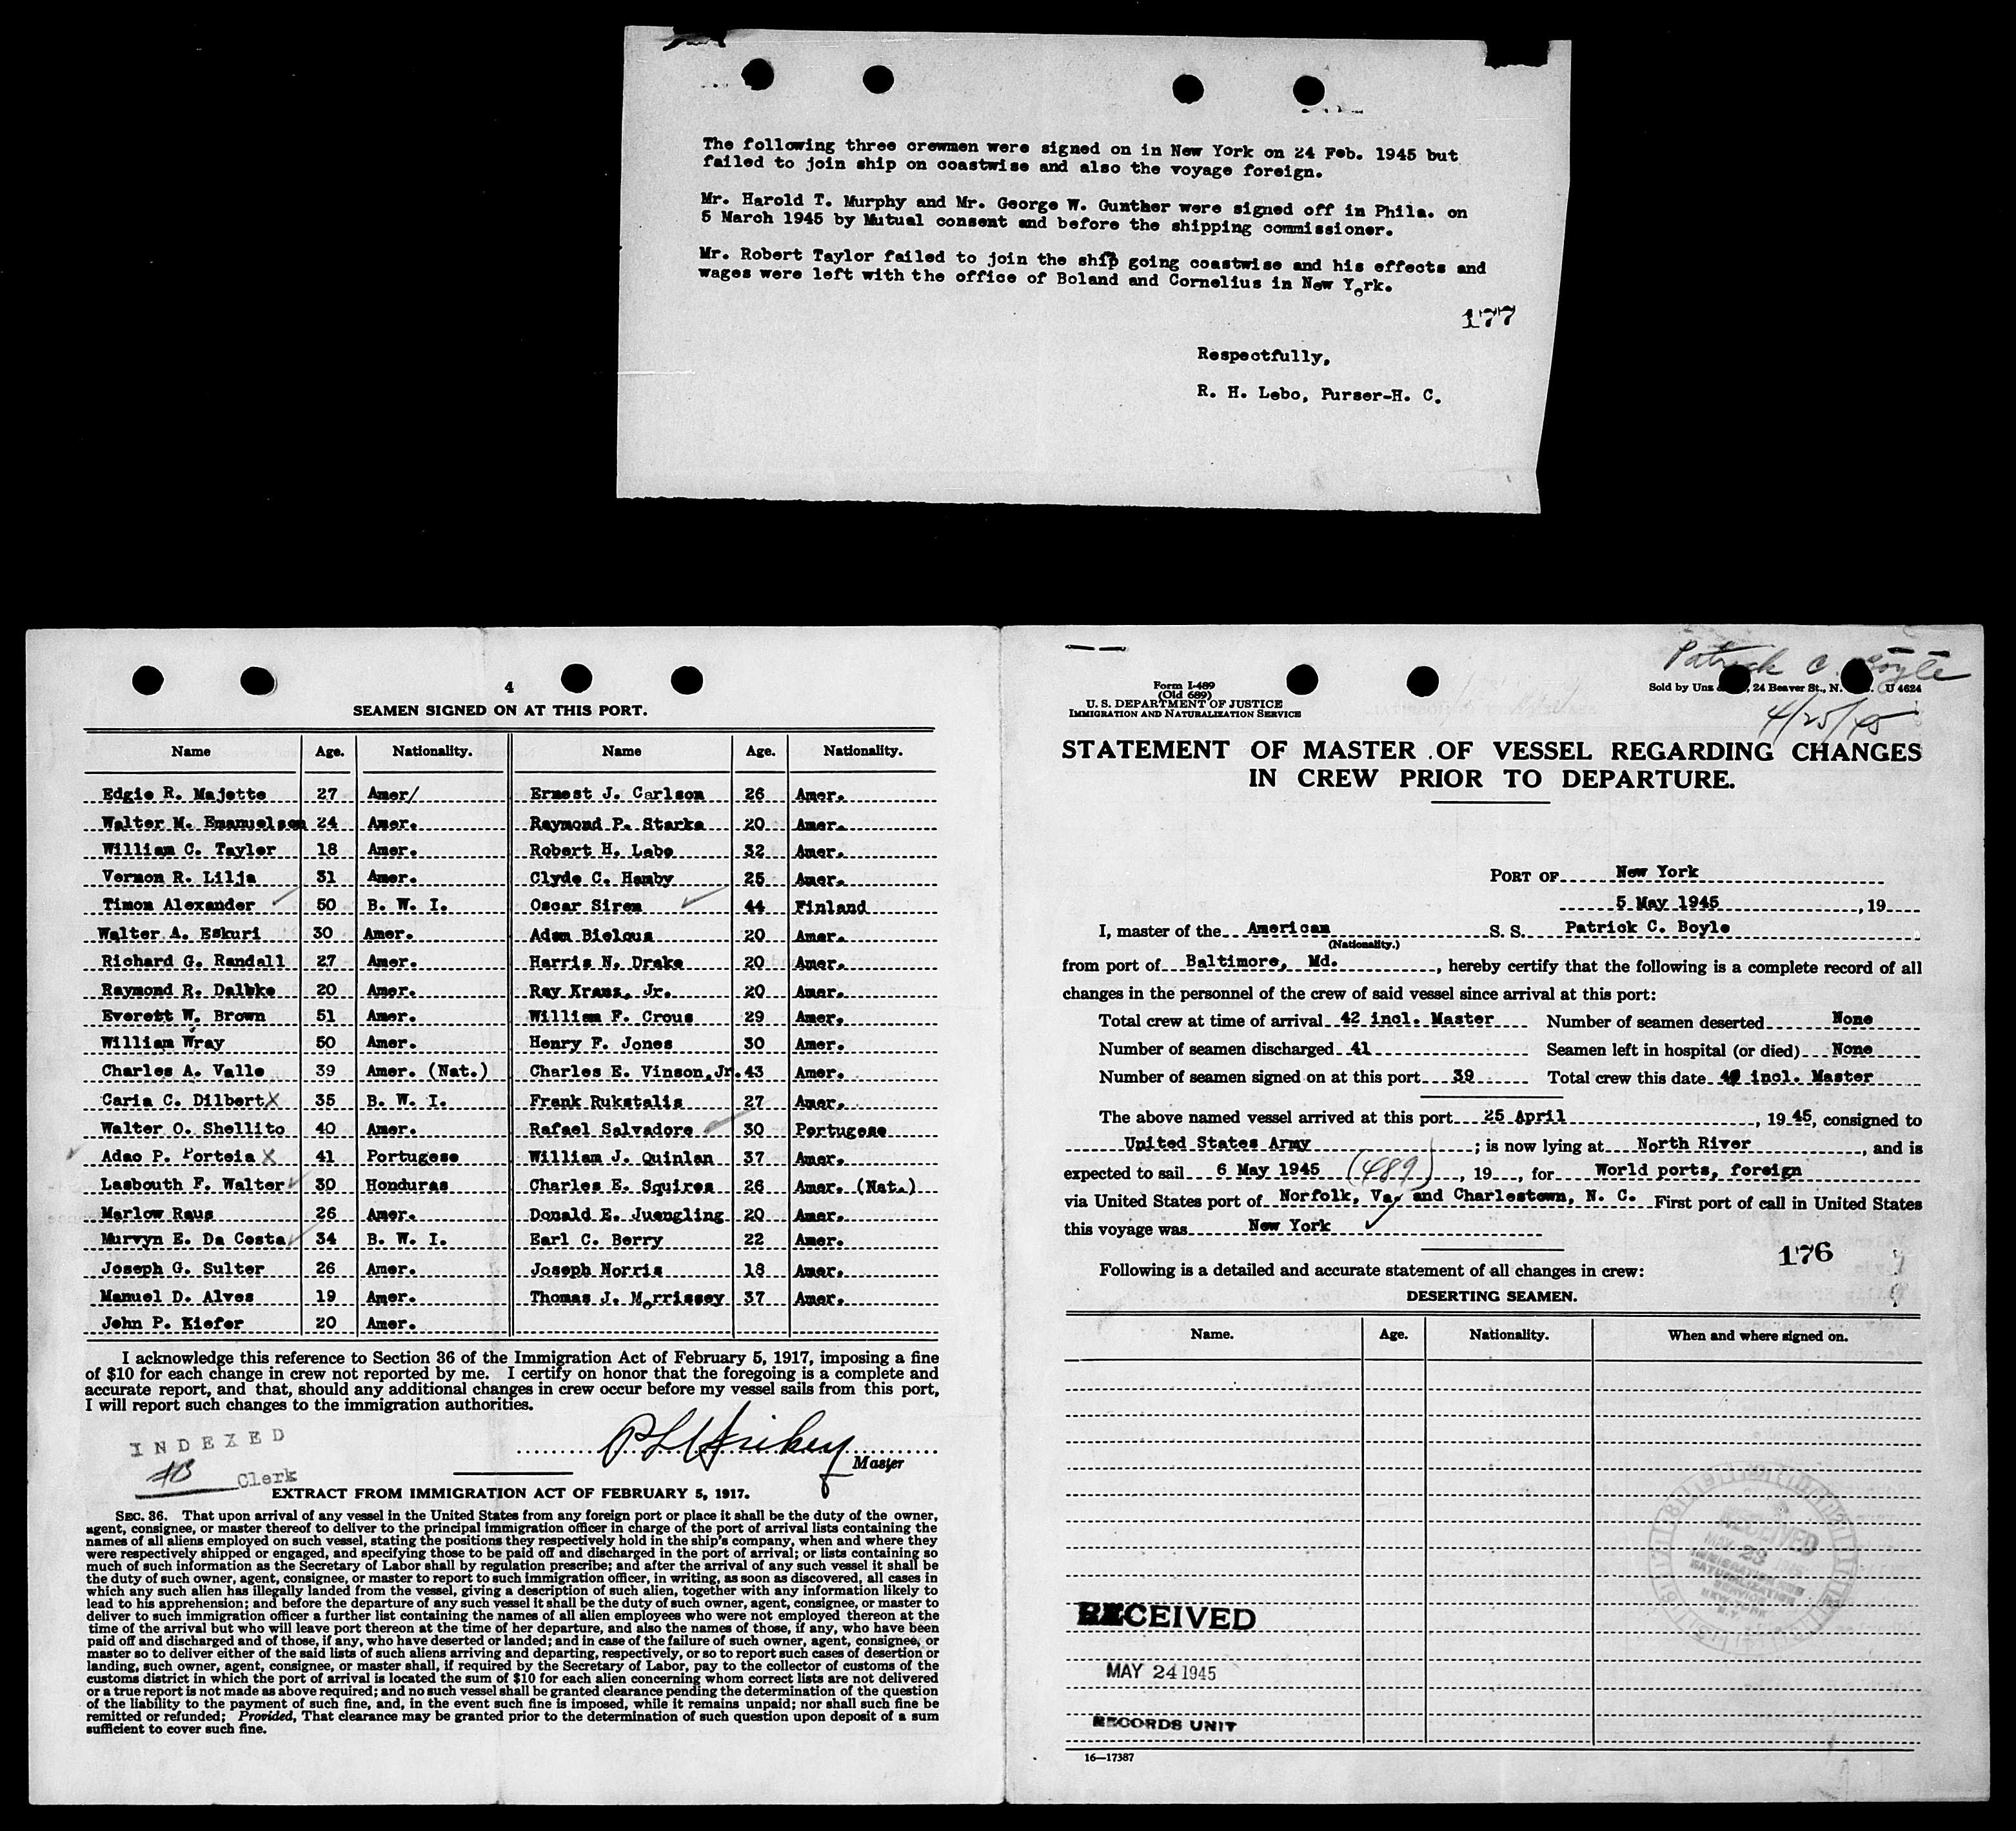 The following three crewmen were signed on in New York on 24 Feb. 1945 but
failed to join ship on coastwise and also the voyage foreign.
Mr. Harold T. Murphy and Mr. George W. Gunther were signed off in Phila. on
5 March 1945 by Mutual consent and before the shipping commissioner.
Mr. Robert Taylor failed to join the ship going coastwise and his effects and
wages were left with the office of Boland and Cornelius in New York.
177
Respectfully,
R. H. Lebo, Purser-H. C.
4
SEAMEN SIGNED ON AT THIS PORT.
Name Age. Nationality. Name Age. Nationality.
Edgie R. Majette 27 Amer/ Ernest J. Carlson 26 Amer.
Walter M. Emanuelson 24 Amer. Raymond P. Starke 20 Amer.
William C. Taylor 18 Amer. Robert H. Lebo 32 Amer.
Vernon R. Lilja 31 Amer. Clyde C. Hamby 25 Amer.
Timon Alexander 50 B. W. I. Oscar Siren 44 Finland
Walter A. Eskuri 30 Amer. Adam Bielous 20 Amer.
Richard G. Randall 27 Amer. Harris N. Drake 20 Amer.
Raymond R. Dalbke 20 Amer. Ray Kranz, Jr. 20 Amer.
Everett W. Brown 51 Amer. William F. Crous 29 Amer.
William Wray 50 Amer. Henry F. Jones 30 Amer.
Charles A. Valle 39 Amer. (Nat.) Charles E. Vinson,Jr. 43 Amer.
Caria C. Dilbert X 35 B. W. I. Frank Rukstalis 27 Amer.
Walter O. Shellito 40 Amer. Rafael Salvadore 30 Portugese
Adao P. Porteia X 41 Portugese William J. Quinlan 37 Amer.
Lasbouth F. Walter 30 Honduras Charles E. Squires 26 Amer. (Nat.)
Marlow Raus 26 Amer. Donald E. Juengling 20 Amer.
Murvyn E. Da Costa 34 B. W. I. Earl C. Berry 22 Amer.
Joseph G. Sulter 26 Amer. Joseph Norris 18 Amer.
Manuel D. Alves 19 Amer. Thomas J. Morrissey 37 Amer.
John P. Kiefer 20 Amer.
I acknowledge this reference to Section 36 of the Immigration Act of February 5, 1917, imposing a fine
of $10 for each change in crew not reported by me. I certify on honor that the foregoing is a complete and
accurate report, and that, should any additional changes in crew occur before my vessel sails from this port,
I will report such changes to the immigration authorities.
INDEXED
Clerk
Master
EXTRACT FROM IMMIGRATION ACT OF FEBRUARY 5, 1917.
SEC. 36. That upon arrival of any vessel in the United States from any foreign port or place it shall be the duty of the owner,
agent, consignee, or master thereof to deliver to the principal immigration officer in charge of the port of arrival lists containing the
names of all aliens employed on such vessel, stating the positions they respectively hold in the ship's company, when and where they
were respectively shipped or engaged, and specifying those to be paid off and discharged in the port of arrival; or lists containing so
much of such information as the Secretary of Labor shall by regulation prescribe; and after the arrival of any such vessel it shall be
the duty of such owner, agent, consignee, or master to report to such immigration officer, in writing, as soon as discovered, all cases in
which any such alien has illegally landed from the vessel, giving a description of such alien, together with any information likely to
lead to his apprehension; and before the departure of any such vessel it shall be the duty of such owner, agent, consignee, or master to
deliver to such immigration officer a further list containing the names of all alien employees who were not employed thereon at the
time of the arrival but who will leave port thereon at the time of her departure, and also the names of those, if any, who have been
paid off and discharged and of those, if any, who have deserted or landed; and in case of the failure of such owner, agent, consignee, or
master so to deliver either of the said lists of such aliens arriving and departing, respectively, or so to report such cases of desertion or
landing, such owner, agent, consignee, or master shall, if required by the Secretary of Labor, pay to the collector of customs of the
customs district in which the port of arrival is located the sum of $10 for each alien concerning whom correct lists are not delivered
or a true report is not made as above required; and no such vessel shall be granted clearance pending the determination of the question
of the liability to the payment of such fine, and, in the event such fine is imposed, while it remains unpaid; nor shall such fine be
remitted or refunded; Provided, That clearance may be granted prior to the determination of such question upon deposit of a sum
sufficient to cover such fine.
Patrick C. Boyle
Form I-489
(Old 689)
U. S. DEPARTMENT OF JUSTICE
IMMIGRATION AND NATURALIZATION SERVICE
Sold by Unz 24 Beaver St., N. U 4624
4/25/45
STATEMENT OF MASTER OF VESSEL REGARDING CHANGES
IN CREW PRIOR TO DEPARTURE.
PORT OF New York
5 May 1945, 19
I, master of the American S. S. Patrick C. Boyle
(Nationality.)
from port of Baltimore, Md., hereby certify that the following is a complete record of all
changes in the personnel of the crew of said vessel since arrival at this port:
Total crew at time of arrival 42 incl. Master Number of seamen deserted None
Number of seamen discharged 41 Seamen left in hospital (or died) None
Number of seamen signed on at this port 39 Total crew this date 40 incl. Master
The above named vessel arrived at this port 25 April, 1945, consigned to
United States Army; is now lying at North River, and is
expected to sail 6 May 1945 (489), 19, for World ports, foreign
via United States port of Norfolk, Va. and Charlestown, N. C. First port of call in United States
this voyage was New York
176
Following is a detailed and accurate statement of all changes in crew:
DESERTING SEAMEN.
Name. Age. Nationality. When and where signed on.
RECEIVED
MAY 23
IMMIGRATION AND
NATURALIZATION
SERVICE
NEW YORK
N.Y.
RECEIVED
MAY 24 1945
RECORDS UNIT
16—17387